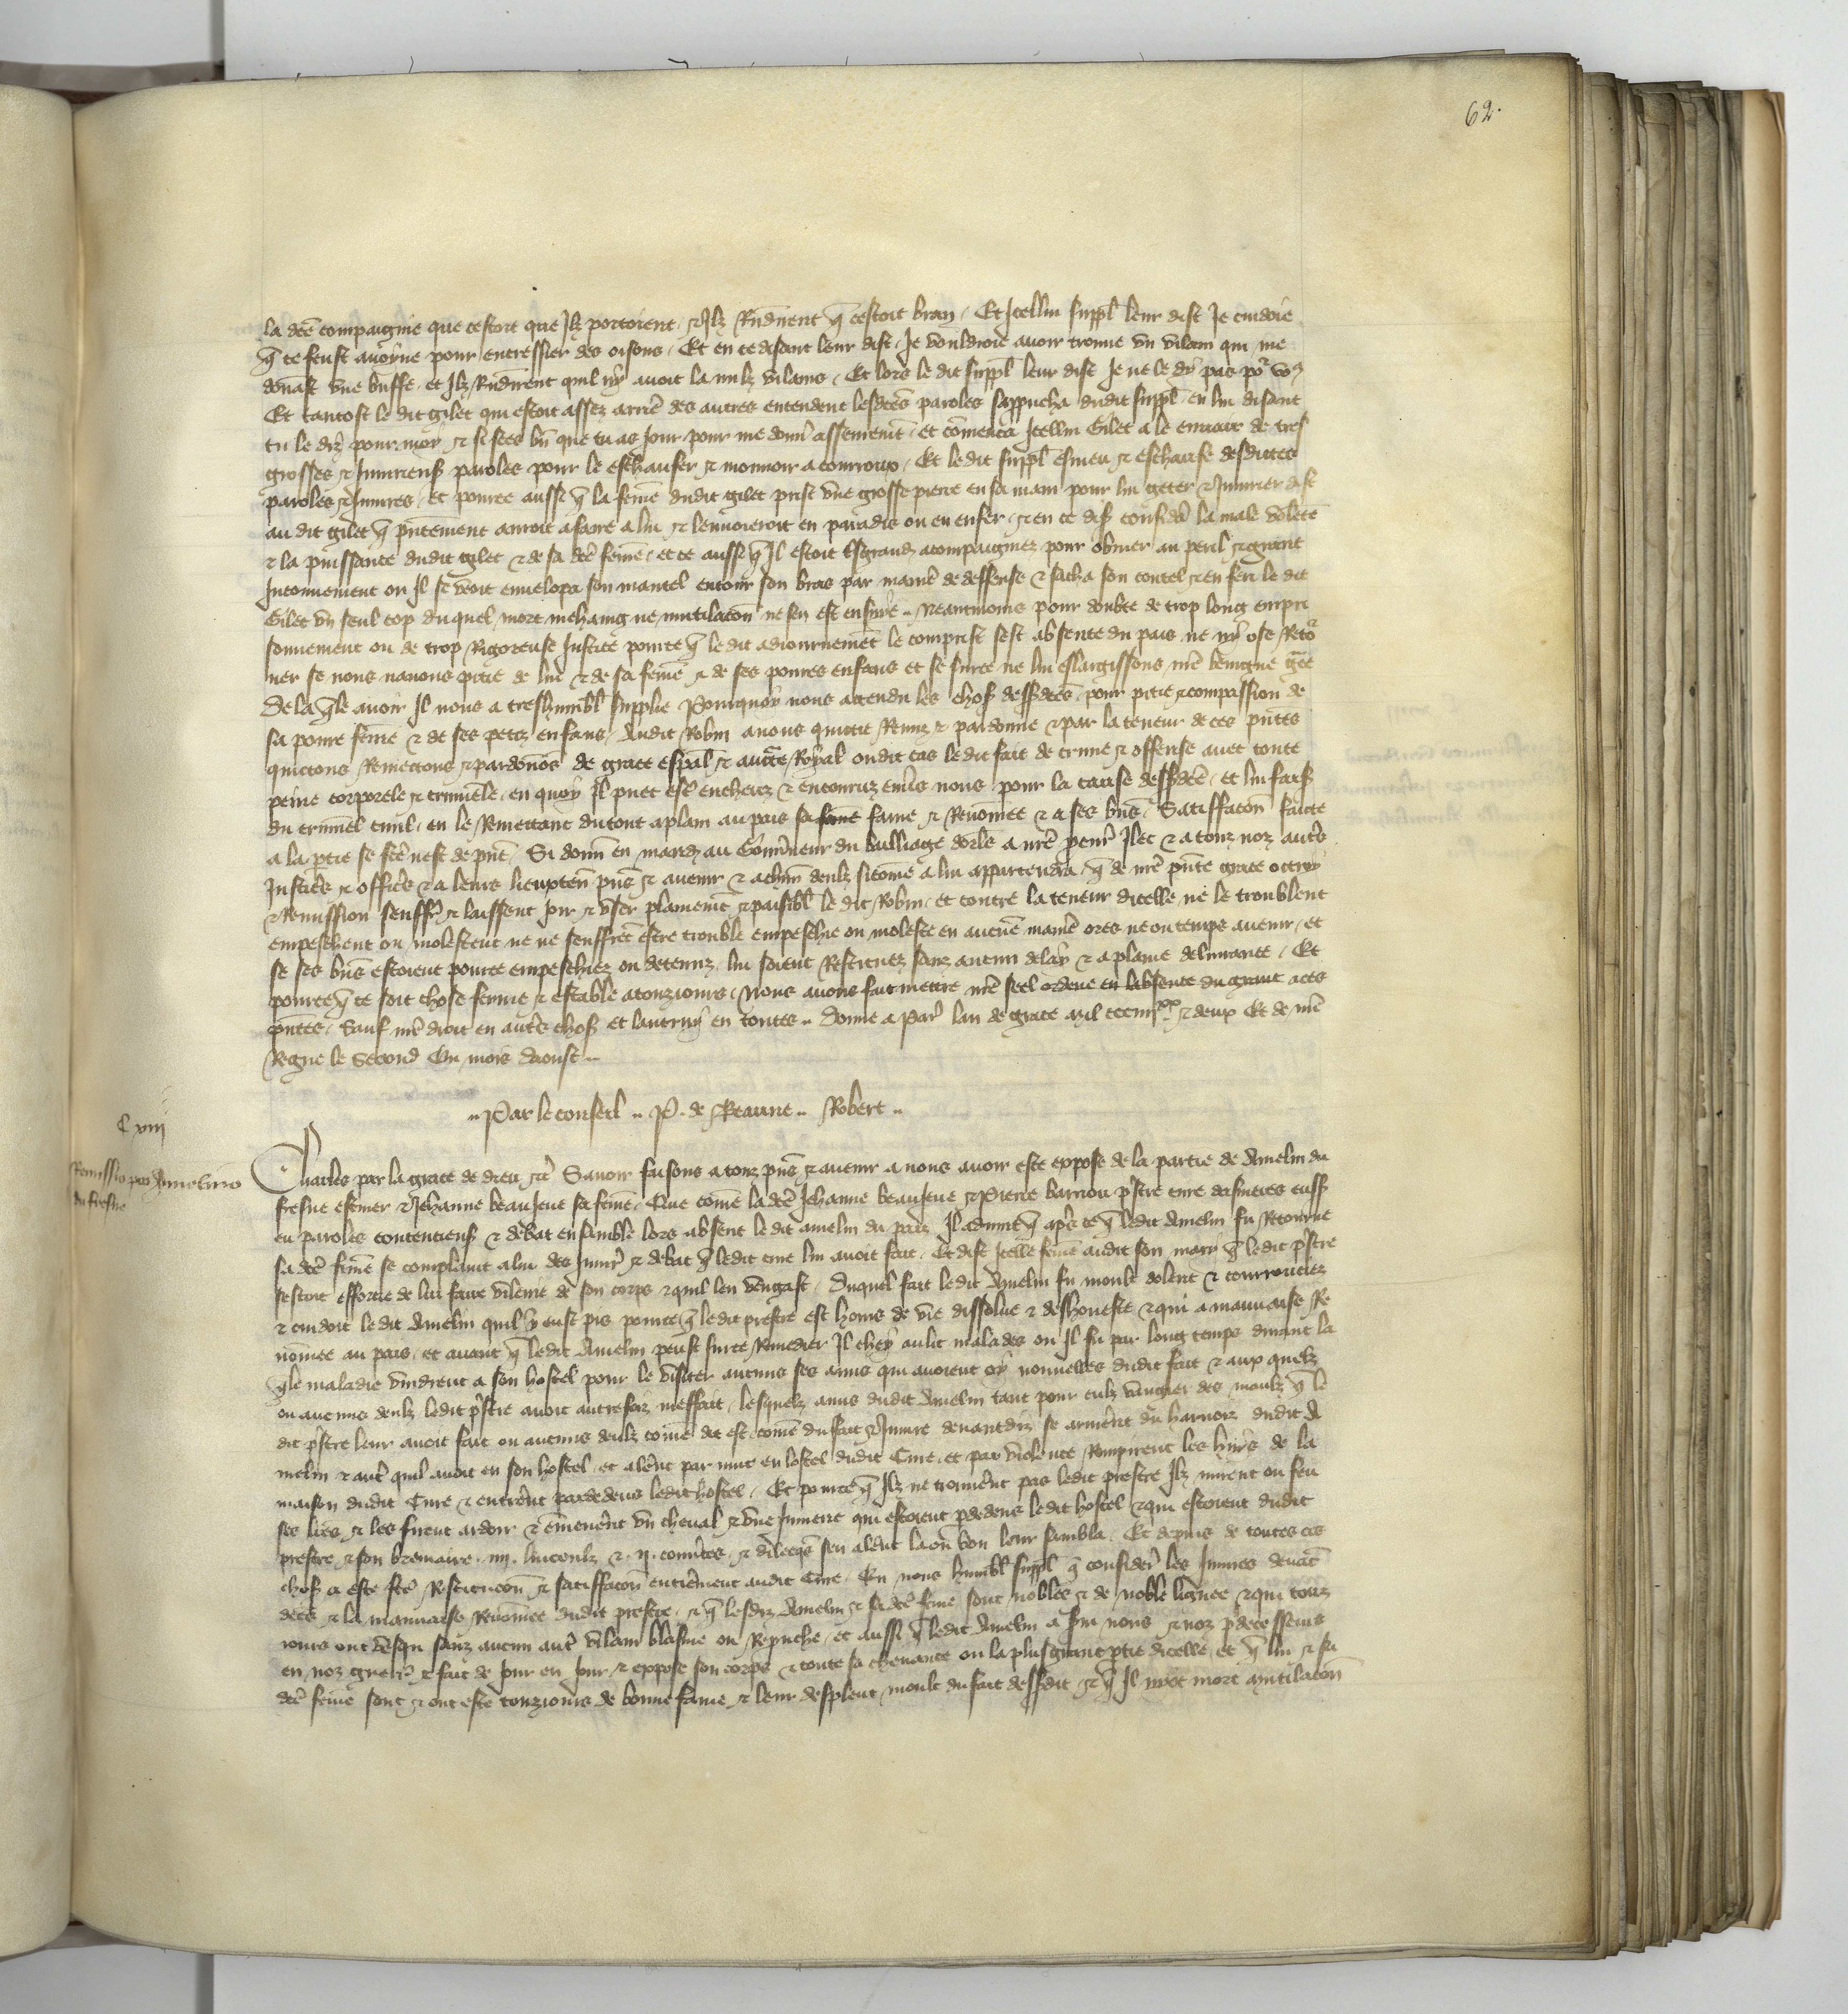 62.
la dcē compaignie que cestoit que Ilz portoient, et Ilz Rndirent q̄ cestoit bran, Et Icellui suppl̄ leur dist Je cuidoie
q̄ ce feust avoyne pour encressier des oisons, Et en ce disant leur dist, Je vouldroie avoir trouve un vilain qui me
donast une buffe, et Ilz Rndirent quil ny avoit la nulz vilains, Et lors le dit suppl̄ leur dist Je ne le dy pas po' vo9
Et tantost le dit gilet qui estoit assez arrie des autres entendent lesdcēs paroles sapprucha dudit suppl̄ en lui disant
tu le diz pour moy et si sces bn̄ que tu as Jour pour me donn̄ assemient̄, et cōmenca Icellui Gilet a le
grosses et Injurieus paroles pour le eschaufer et mouvoir a courroux, Et le dit suppl̄ esmeu et eschaufe desdittes
paroles et Injures, et pource aussi q̄ la feme dudit gilet prist une grosse pierre en sa main pour lui geter et Injurier dist
au dit gilet q̄ pn̄tement auroit afaire a lui et lenvoieroit en paradis ou en enfer, et en ce dis̄ consideré la male volente
et la puissance dudit gilet et de sa dcē feme, et ce aussi q̄ Il estoit acompaignez pour obvier au peril et grant
Inconvenient ou Il se veoit envelopa son mantel entour son bras par maniē de deffense et sacha son coutel et en feri le dit
Gilet un seul cop duquel mort mehaing ne mutilacōn ne sen est ensuye.. Neantmoins pour doubte de trop long empri
sonnement ou de trop Rigoreuse Justice pource q̄ le dit adiournement̄ le comprist sest absente du pais, ne ny ose Reto'
ner se nous navons pitie de lui et de sa feme et de ses povres enfans et se surce ne lui eslargissons nr̄e benigne gr̄ce
De laq̄le avoir Il nous a treshumbl̄ supplie Pourquoy nous attendu les chos̄ dessdcēs, pour pitie et compassion de
sa povre feme et de ses petiz enfans, Audit Robin avons quictie Remis et pardonne et par la teneur de ces pn̄tes
quictons Remectons et pardōnōs de grace esp̄al et auctē Royal ondit cas le dit fait de crime et offense avec toute
peine corporele et criminele, en quoy Il puet estr̄ encheuz et encouruz envers nous pour la cause dessdcē, et lui fais̄
du criminel civil, en le Remettant du tout aplain au pais sa fame et Renōmee et a ses bn̄s, Satiffacōn faicte
a la ptie se fcē nest de pn̄t, Si donn̄ en mand3 au Gouv̄neur du bailliage dorlēs a nr̄e pcur̄ Ilec et a touz noz autr̄s
Justic̄s et offic̄s et a leurs lieuxten̄ pn̄s et avenir et a chūn deulz sicōme a lui appartendra, q̄ de nr̄e pn̄te grace octroy
et Remission seuffr̄ et laissent Joir et user plainemt̄ et paisibl̄ le dit Robin, et contre la teneur dicelle ne le troublent
empeschent ou molestent ne ne seuffrēt estre trouble empeschie ou moleste en aucūe maniē ores ne ou temps avenir, et
se ses bn̄s estoient pource empeschiez ou detenuz, lui soient Restituez sanz aucun delay et a plaine delivrance, Et
pource q̄ ce soit chose ferme et estable a touziours, Nous avons fait mettre nr̄e seel ordene en labsence du grant aces
pn̄tes, Sauf nr̄e droit en autr̄s chos̄ et lautruy en toutes.. Donne a Par̄ lan de grace mil ccciiii xx et deux Et de nr̄e
Regne le Second Ou mois daoust..
..Par le conseil.. P. de Beaune.. Robert..
C viij
Remissio pro Amelino
du fresne
Charles par la grace de dieu etc̄ Savoir faisons a touz pn̄s et avenir a nous avoir este expose de la partie de Amelin du
fresne escuier et Jehanne beaujeue sa feme, Que cōme la dcē Jehanne beaujeue et Pierre barriou p̄stre cure eus̄s
eu paroles contencieus̄ et debat ensamble lors absent le dit amelin du pais, Il advint q̄ apr̄s ce q̄ ledit Amelin fu Retourne
sa dcē feme se complaint a lui des Injur̄ et debat q̄ le dit cure lui avoit fait, Et dist Icelle feme audit son mary q̄ le dit p̄stre
sestoit efforcie de lui faire vilenie de son corps et quil len vengast, Duquel fait le dit Amelin fu moult dolent et courrouciez
et cuidoit le dit Amelin quil y eust pis pource q̄ le dit prestre est homs de vie dissolue et deshoneste et qui a mauvaise Re
nōmee au pais, et avant q̄ le dit Amelin peust surce Remedier Il chey au lit malades ou Il fu par long temps durant la
q̄le maladie vindrent a son hostel pour le visiter aucuns ses amis qui avoient oy nouvelles dudit fait et aux quelz
ou aucuns deulz ledit p̄stre avoit autresfoiz meffait, lesquelz amis dudit Amelin tant pour eulz vengier des maulx q̄ le
dit p̄stre leur avoit fait ou aucuns deulz cōme dit est, cōme du fait et Injure devantdiz se armer̄nt du harnoiz dudit A
melin et autr̄ quil avoit en son hostel, et aler̄nt par nuit en lostel dudit Cure, et par violence Rompirent les huis de la
maison dudit Cure et entrer̄nt pardedens ledit hostel, Et pource q̄ Ilz ne trouver̄nt pas ledit prestre Ilz mirent ou feu
ses liēs et les firent ardoir et ēmener̄nt un cheval et une Jument qui estoient pdedens le dit hostel et qui estoient dudit
prestre, et son breviaire .iiij. linceulz et .ij. couvertes, et dilecqs sen aler̄nt la ou bon leur sambla, Et depuis de toutes ces
chos̄ a este fcē Restitucōn et satiffacōn entierement audit Cure, En nous humbl̄ suppl̄ q̄ consider̄ les Injures devāt
dcēs et la mauvaise Renōmee dudit prestre, et q̄ lesdiz Amelin et sa dcē feme sont nobles et de noble lignee et qui touz
iours ont vesqu sanz aucun autr̄ vilain blasme ou Repruche, et aussi q̄ ledit Amelin a s̄vi nous et noz predecesseurs
en noz guerr̄ et fait de Jour en Jour et expose son corps et toute sa chevance ou la plus grant ptie dicelle, et q̄ lui et sa
dcē feme sont et ont este touziours de bonne fame et leur desplent moult du fait dessdit et q̄ Il ny ot mort mutilacōn